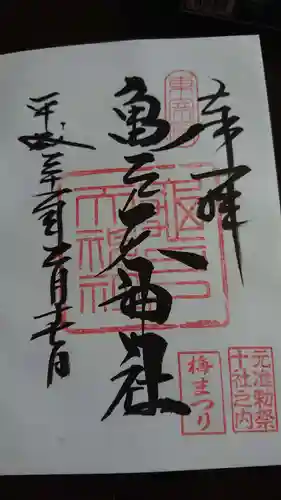 奉拝
東宰府
亀戸天神社
亀戸天神社
平成三十年二月十七日
元准勅祭
十社之内
梅まつり